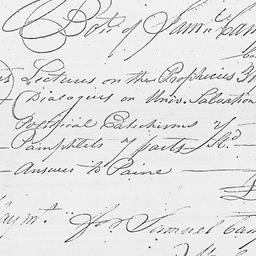 Bot. of Sam. Cam
Lectures on the Prophecies
Dialogues on Univ. Salvation
Poetical Catechisms of
Pamphlets of facts &c.
Answer to Paine
Paym.t for Samuel Cam